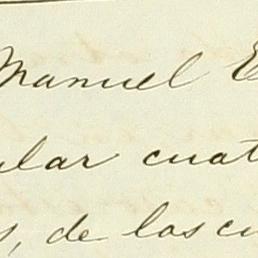 Manuel E
ular cuat
s, de las cu